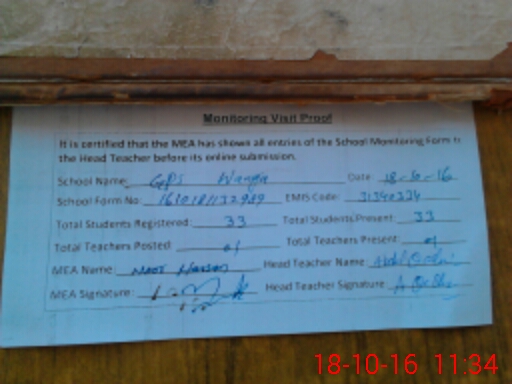 Monitoring Visit Proof
It is certified that the MEA has shown all entries of the School Monitoring Form to
the Head Teacher before its online submission.
School Name: GPS Date: 18-10-16
School Form No: EMIS Code:
Total Students Registered: 33 Total Students Present: 33
Total Teachers Posted: 01 Total Teachers Present: 01
MEA Name: Noor Hassan Head Teacher Name:
MEA Signature: Head Teacher Signature
18-10-16 11:34